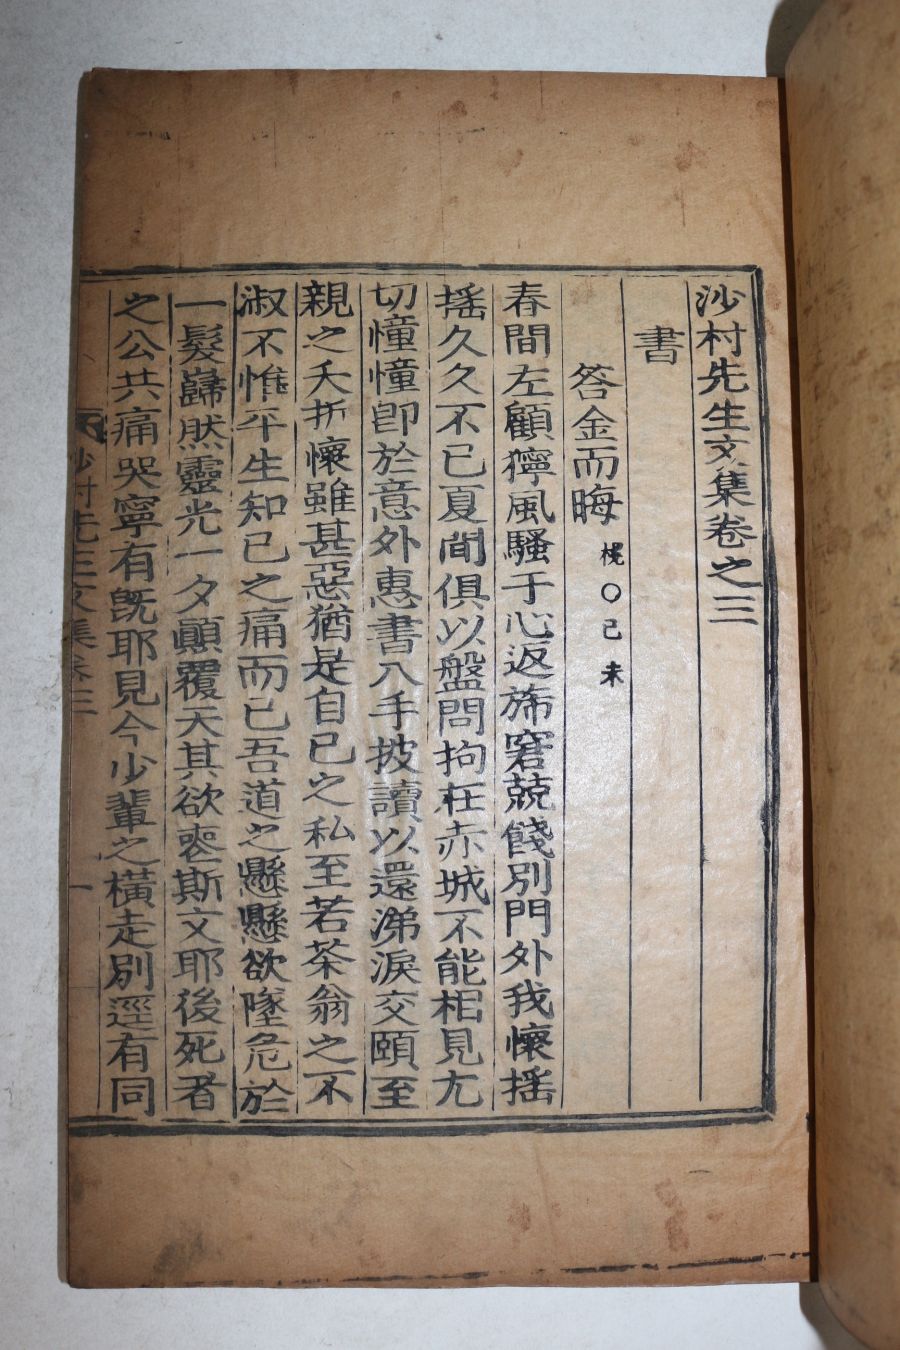 沙村先生文集卷之三
書
答金而晦 梡○己未
春間左顧獰風騷于心返旆窘兢餞別門外我懷搖
搖久久不已夏間俱以盤問拘在赤城不能相見尤
切憧憧卽於意外惠書入手披讀以還涕淚交頤至
親之夭折懷雖甚惡猶是自己之私至若茶翁之不
淑不惟平生知己之痛而已吾道之懸懸欲墜危於
一髮巋然靈光一夕顚覆天其欲喪斯文耶後死者
之公共痛哭寧有旣耶見今少輩之橫走別逕有同
沙村先生文集卷三
一